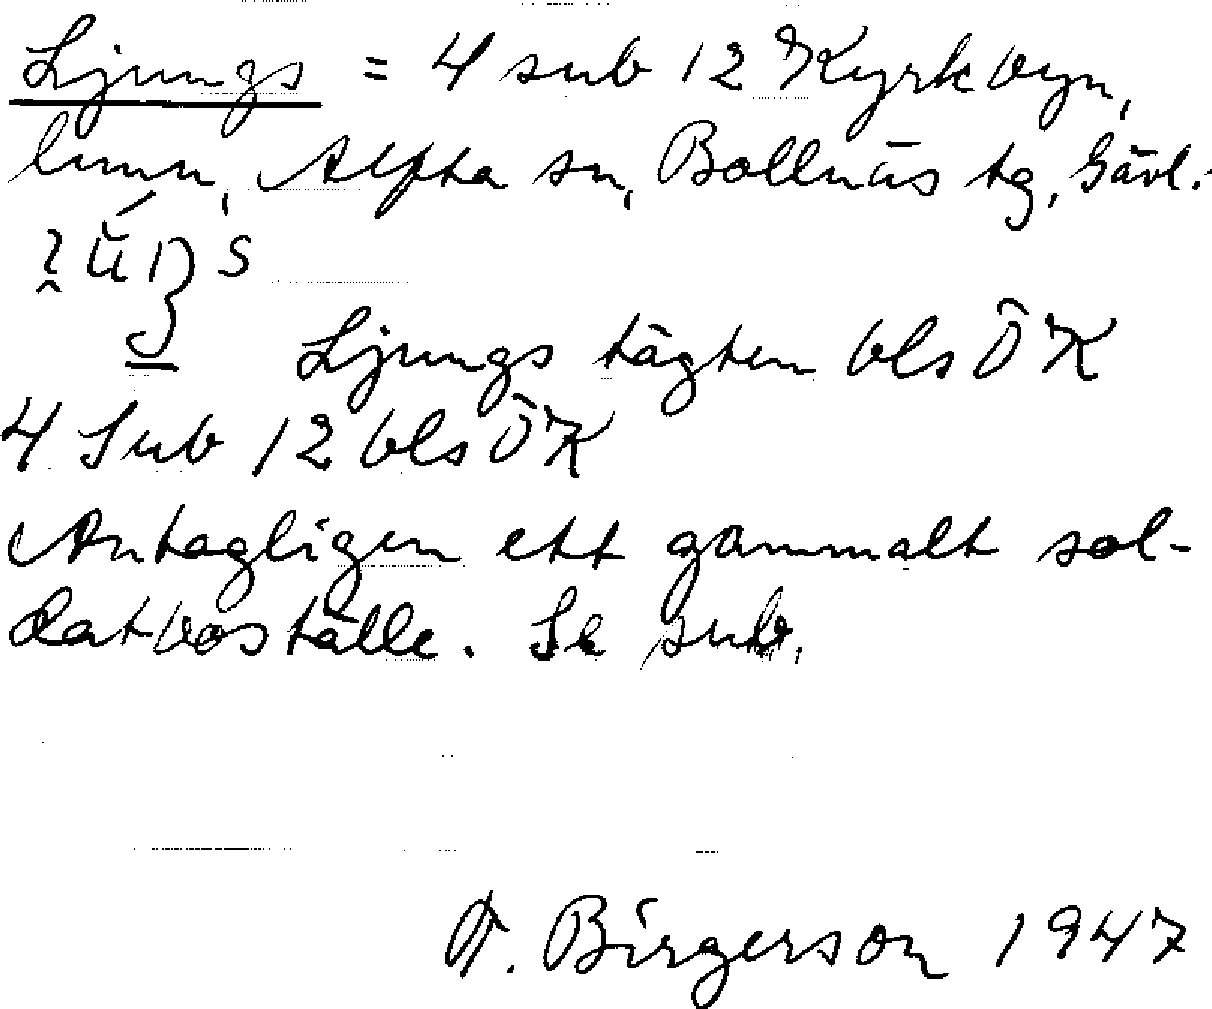 Ljungs = 4 sub 12 Kyrkbyn,
lmn, Alfta sn, Bollnäs tg, Gävl.
Ljungs tägten bls ÖK
4 Sub 12 bls ÖK
Antagligen ett gammalt sol-
datboställe. Se sub.
A. Birgerson 1947